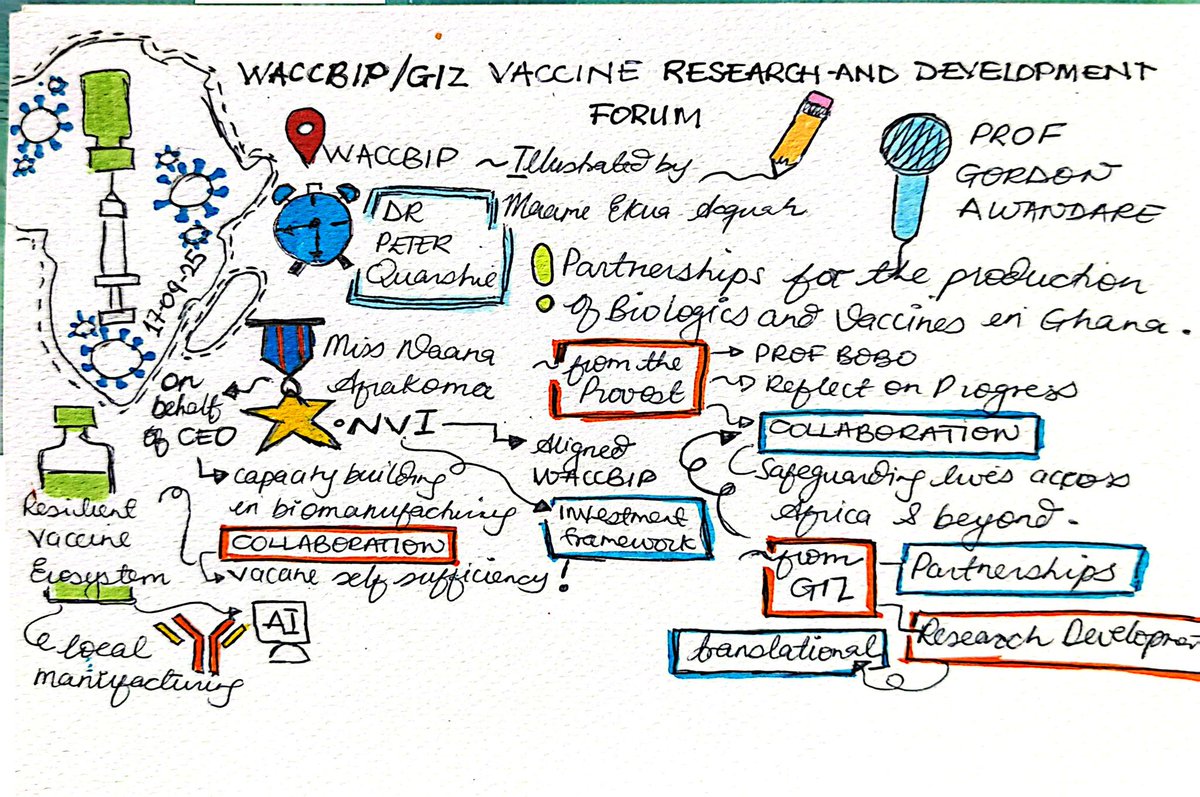 WACCBIP/GIZ VACCINE RESEARCH AND DEVELOPMENT
FORUM
WACCBIP ~ Illustrated by
Maame Ekua Acquah
PROF
GORDON
AWANDARE
DR
PETER
Quarshie
17-09-25
Partnerships for the production
of Biologics and Vaccines in Ghana.
Miss Naana
Afrakoma
on
behalf
of CEO
• NVI
Aligned
WACCBIP
investment
framework
capacity building
in biomanufacturing
COLLABORATION
vaccine self sufficiency!
~from the
Provost
PROF BOBO
Reflect on Progress
COLLABORATION
Safeguarding lives across
Africa & beyond.
~from
GIZ
Partnerships
Research Developmen
translational
Resilient
vaccine
Ecosystem
AI
local
manufacturing